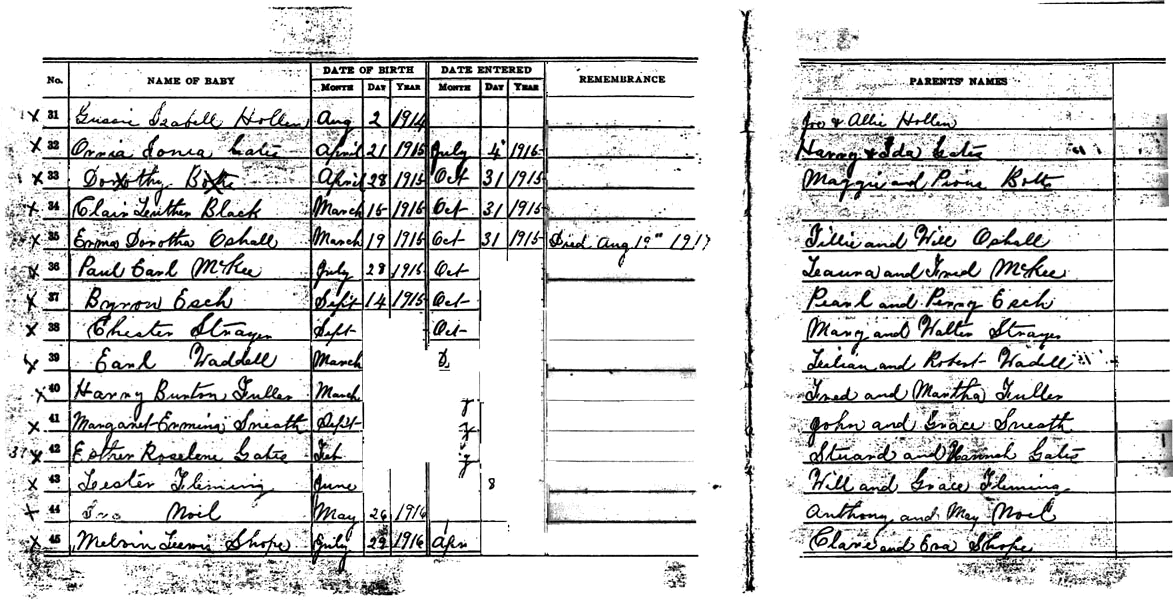 No. NAME OF BABY DATE OF BIRTH DATE ENTERED REMEMBRANCE PARENTS' NAMES
MONTH DAY YEAR MONTH DAY YEAR
X 31 Gussie Isabell Hollen Aug 2 1914 Joe & Allie Hollen
X 32 Gates April 21 1915 July 4 1915 Harry & Ida Gates
X 33 Dorothy Botts April 28 1915 Oct 31 1915 Maggie and Botts
X 34 Clair Luther Black March 15 1915 Oct 31 1915
X 35 Erma Dorotha Oshall March 19 1915 Oct 31 1915 Died Aug 19" 191? Tillie and Will Oshall
X 36 Paul Earl McKee July 28 1915 Oct Leaura and Fred McKee
X 37 Byron Esch Sept 14 1915 Oct Pearl and Perry Esch
X 38 Chester Strayer Sept Oct Mary and Walter Strayer
X 39 Earl Waddell March Lilian and Robert Wadell
X 40 Harry Burton Fuller March Fred and Martha Fuller
X 41 Margaret Ermina Sneath Sept John and Grace Sneath
X 42 Esther Roselene Gates Feb Stuard and Hannah Gates
X 43 Lester Fleming June 8 Will and Grace Fleming
X 44 Noel May 26 1916 Anthony and May Noel
X 45 Melvin Lewis Shope July 29 1916 Apr Clare and Eva Shope